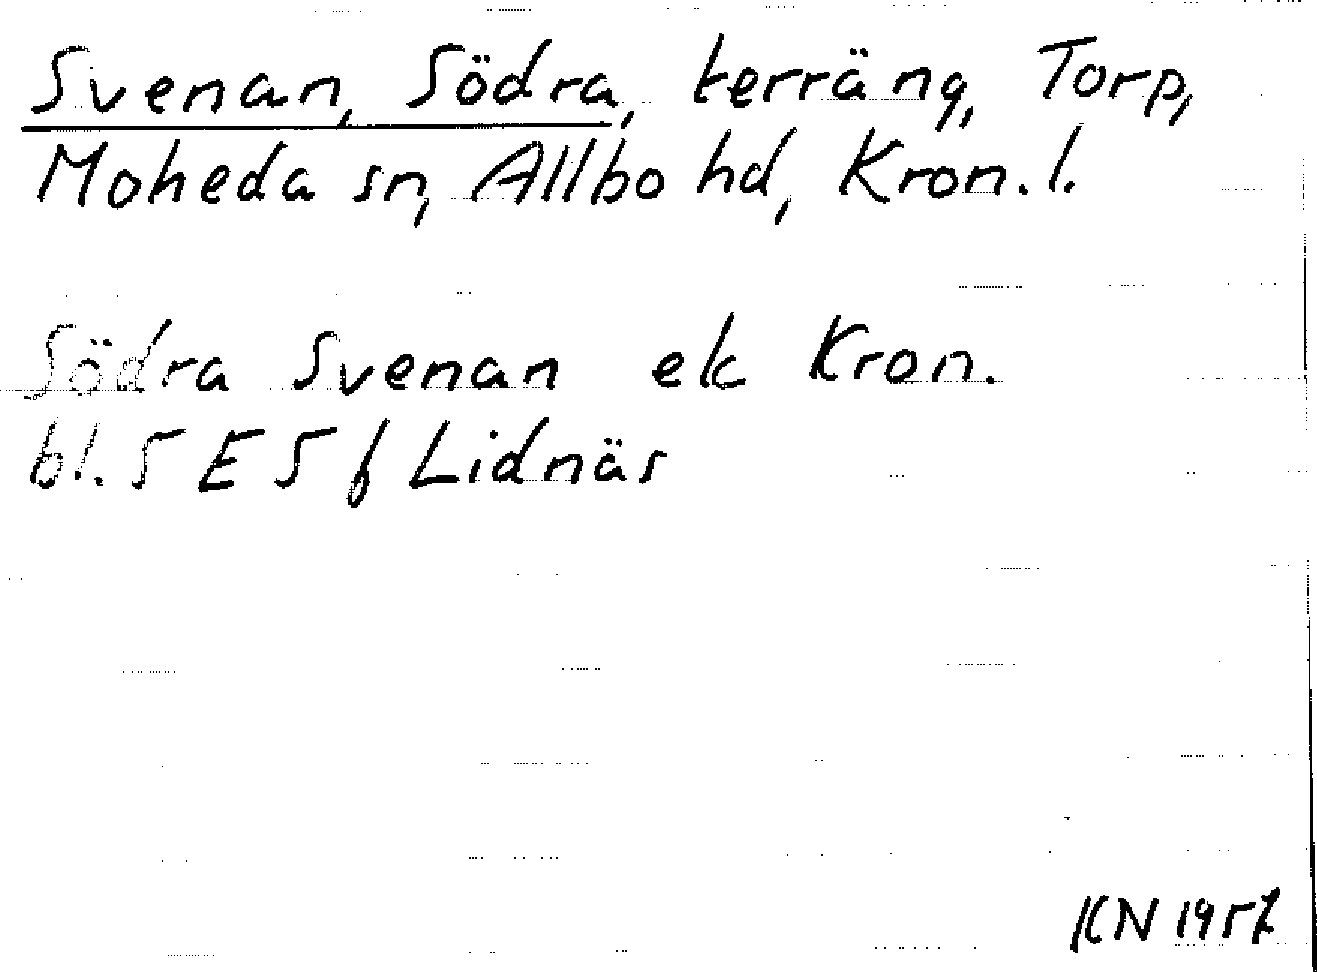 Svenan, Södra, terräng, Torp,
Moheda sn, Allbo hd, Kron. l.
Södra Svenan ek Kron.
bl. 5 E 5 f Lidnäs
KN 1957